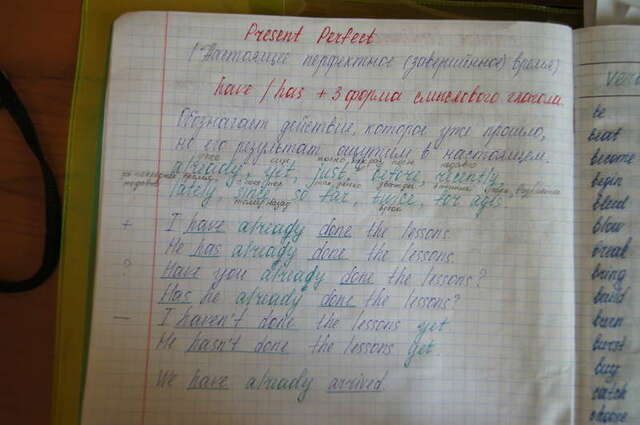 Present Perfect
(Настоящее перфектное (завершённое) время)
have / has + 3 форма смыслового глагола
Обозначает действие, которое уже прошло,
но его результат ощутим в настоящем.
уже еще недавно
already, yet, just, before, recently,
lately, so far, twice, for ages.
+ I have already done the lessons.
He has already done the lessons.
? Have you already done the lessons?
Has he already done the lessons?
— I haven't done the lessons yet.
He hasn't done the lessons yet.
We have already arrived.
be
beat
become
begin
bleed
blow
break
bring
build
burn
burst
buy
catch
choose